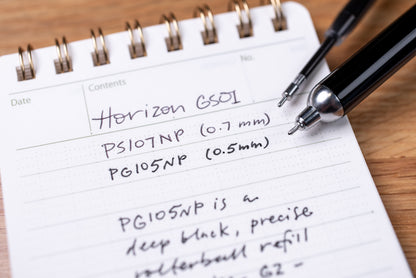 Date
Contents
No.
Horizon GS01
PS107NP (0.7 mm)
PG105NP (0.5mm)
PG105NP is a
deep black, precise
rollerball refill
G2 -